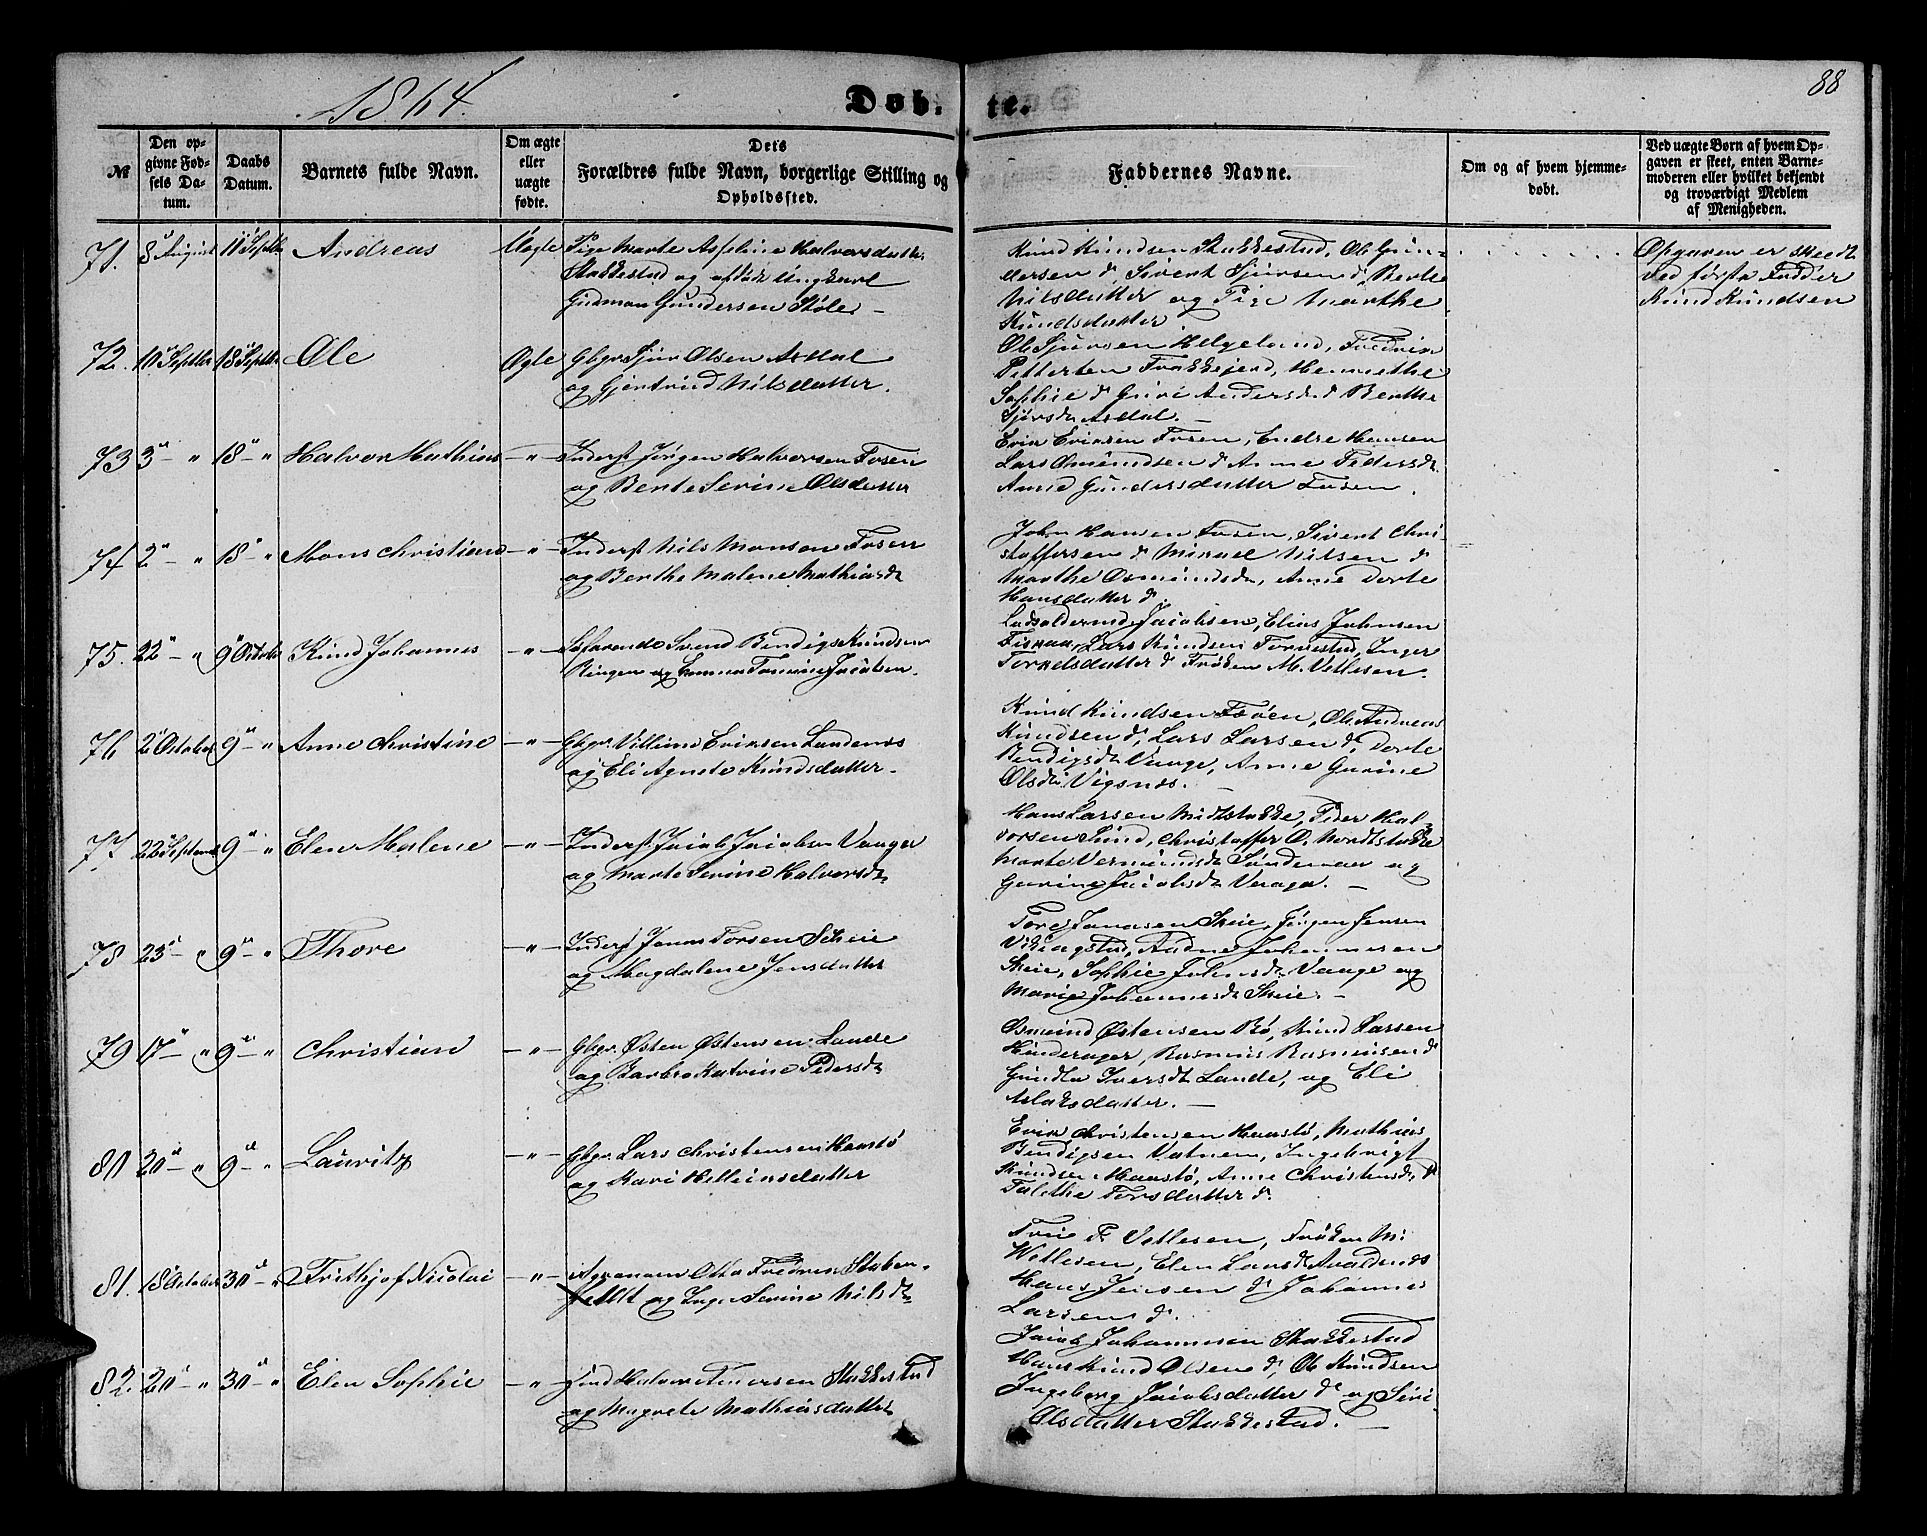 1864.
Døb-
te.
88
№
Den op-
givne Fød-
sels Da-
tum.
Daabs
Datum.
Barnets fulde Navn.
Om ægte
eller
uægte
fødte.
Dets
Forældres fulde Navn, borgerlige Stilling og
Opholdssted.
Faddernes Navne.
Om og af hvem hjemme-
døbt.
Ved uægte Børn af hvem Op-
gaven er skeet, enten Barne-
moderen eller hvilket bekjendt
og troværdigt Medlem
af Menigheden.
71. 8 August 11 Septbr Andreas Uægte Pige Marte Asseline Halvorsdatter
Stakkestad og afløste Ungkarl
Gudman Gundersen Støle
Knud Knudsen Stakkestad, Ole Gun-
dersen do, Sivert Sjursen do, Berte
Nilsdatter og Pige Marthe
Knudsdatter
Opgaven er skeedt
ved første Fadder
Knud Knudsen
72. 10 Septbr 18 Septbr Ole Ægte Gbgr Sjur Olsen Asdal
og Gjertrud Nilsdatter.
Ole Sjursen Helgeland, Fredrik
Pettersen
Sophie do Guri Andersd. do Berthe
Sjursdtr Asdal
73 3 - " 18 - " Halvor Mathias - " - Inderst Jørgen Halvorsen Fosen
og Berte Serine Olsdatter
Erik Eriksen Fosen, Endre Hansen
Lars Osmundsen do Anne Pedersdtr
Anne Gundersdatter Fosen.
74 2 - " 18 - " Mons Christian - " - Inderst Nils Monsen Fosen
og Berthe Malene Mathiasdtr
John Hansen Fosen, Sivert Chri-
stoffersen do Mikael Nilsen do
Marthe Osmundsdtr, Anne Dorte
Hansdatter do.
75. 22 - " 9 October Knud Johannes - " - Svend Bendigt Knudsen
Ringen og Jacobsen.
Jacobsen, Elias Johnsen
Lars Knudsen Tornestad, Inger
Torkelsdatter do Frøken M. Vetlesen.
76 2 October 9 - " Anne Christine - " - Gbgr. Villum Eriksen Landenes
og Eli Agnete Knudsdatter
Knud Knudsen Ole Andreas
Knudsen do, Lars Larsen do, Dorte
Bendigsdtr Vaage, Anne Gurine
Olsdtr Vigsnes.
77. 22 Septemb 9 - " Elen Malene - " - Inderst Jacob Jacobsen Vaage
og Marte Serine Halvorsdtr
Hans Larsen Midtstokke, Peder Hal-
vorsen Sund, Christoffer O. Nordtstokke
Marte Vermundsdtr Søndenaa og
Gurine Jacobsdtr Vaage.
78 25 - " 9 - " Thore - " - Inderst Jonas Torsen Scheie
og Magdalene Jensdatter
Tore Jonassen Skeie, Jørgen Jensen
Vikingstad, Aadne Johannesen
Skeie, Sophie Johnsdtr Vaage og
Marie Johannesdtr Skeie.
79 17 - " 9 - " Christian - " - Gbgr. Østen Østensen Lande
og Barbro Katrine Pedersdtr
Osmund Østensen Bø, Knud Larsen
Hinderager, Rasmus Rasmusen do
Gundla Iversdtr Lande, og Eli
Aslaksdatter.
80 20 - " 9 - " Lauritz - " - Gbgr. Lars Christensen Haastø
og Kari Helleinsdatter
Erik Christensen Haastø, Mathias
Bendigsen Vatnem, Ingebrigt
Knudsen Haastø, Anne Christensd, do
Talethe Torsdatter do.
81. 18 October 30 - " Frithjof Nicolai - " - Agronom Otto Fredrik Staben-
feldt og Inger Serine Nilsdtr
Vetlesen, Frøken M.
Vetlesen, Elen Larsdtr Avaldsnes
Hans Jensen do Johannes
Larsen do.
82. 20 - " 30 - " Elen Sophie - " - Halvor Iversen Stakkestad
og Magrete Mathiasdatter
Jacob Johannesen Stakkestad
Hans Knud Olsen do, Ole Knudsen
Ingeborg Jacobsdatter do og Siri
Olsdatter Stakkestad.